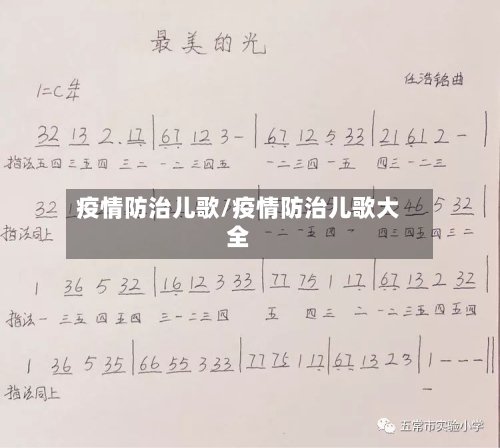 最美的光
1=C 4/4
任浩铭曲
32 13 2. 17 | 67 12 3 - | 67 12 5 33 | 21 61 2 - |
指法五四三五四 三二 一二三四五 一二三四 一五 四三一二三
32 1
46 5 32
疫情防治儿歌/疫情防治儿歌大
全
指法同上
四三四五四三二
1 36 5 32 | 16 12 3 33 | 77 75 1 17 | 67 13 2 32 |
指法一 三五四五四 三一二三四 五 四三 二 一二三五四五四
1 36 5 35 | 66 55 3 33 | 77 75 1 17 | 67 13 2 3 | 1 - - - ||
指法同上 一
五常市实验小学